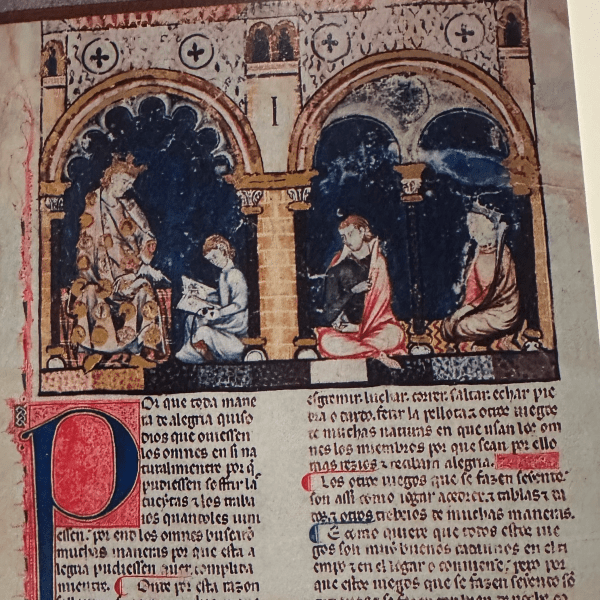 I
POr que toda mane
ra de alegria quiso
dios que ouiessen
los omnes en si na
turalmientre por q̃
pudiessen soffrir las
cueytas ⁊ los traba
ios quando les uini
essen. por end los omnes buscarõ
muchas maneras por que esta a
legria pudiessen auer complida
mientre. Onde por esta razon
esgremir. luchar. correr. saltar. echar pie
dra o dardo. ferir la pellota ⁊ otros iuegos
de muchas naturas en que usan los om
nes los miembros por que sean por ello
mas rezios ⁊ reciban alegria.
Los otros iuegos que se fazen seyendo
son assi como iogar acedrex ⁊ tablas ⁊ da
dos ⁊ otros trebeios de muchas maneras.
E como quiere que todos estos iue
gos son muy buenos cadaunos en el ti
empo ⁊ en el lugar o conuiene. pero por
que estos iuegos que se fazen seyendo sõ